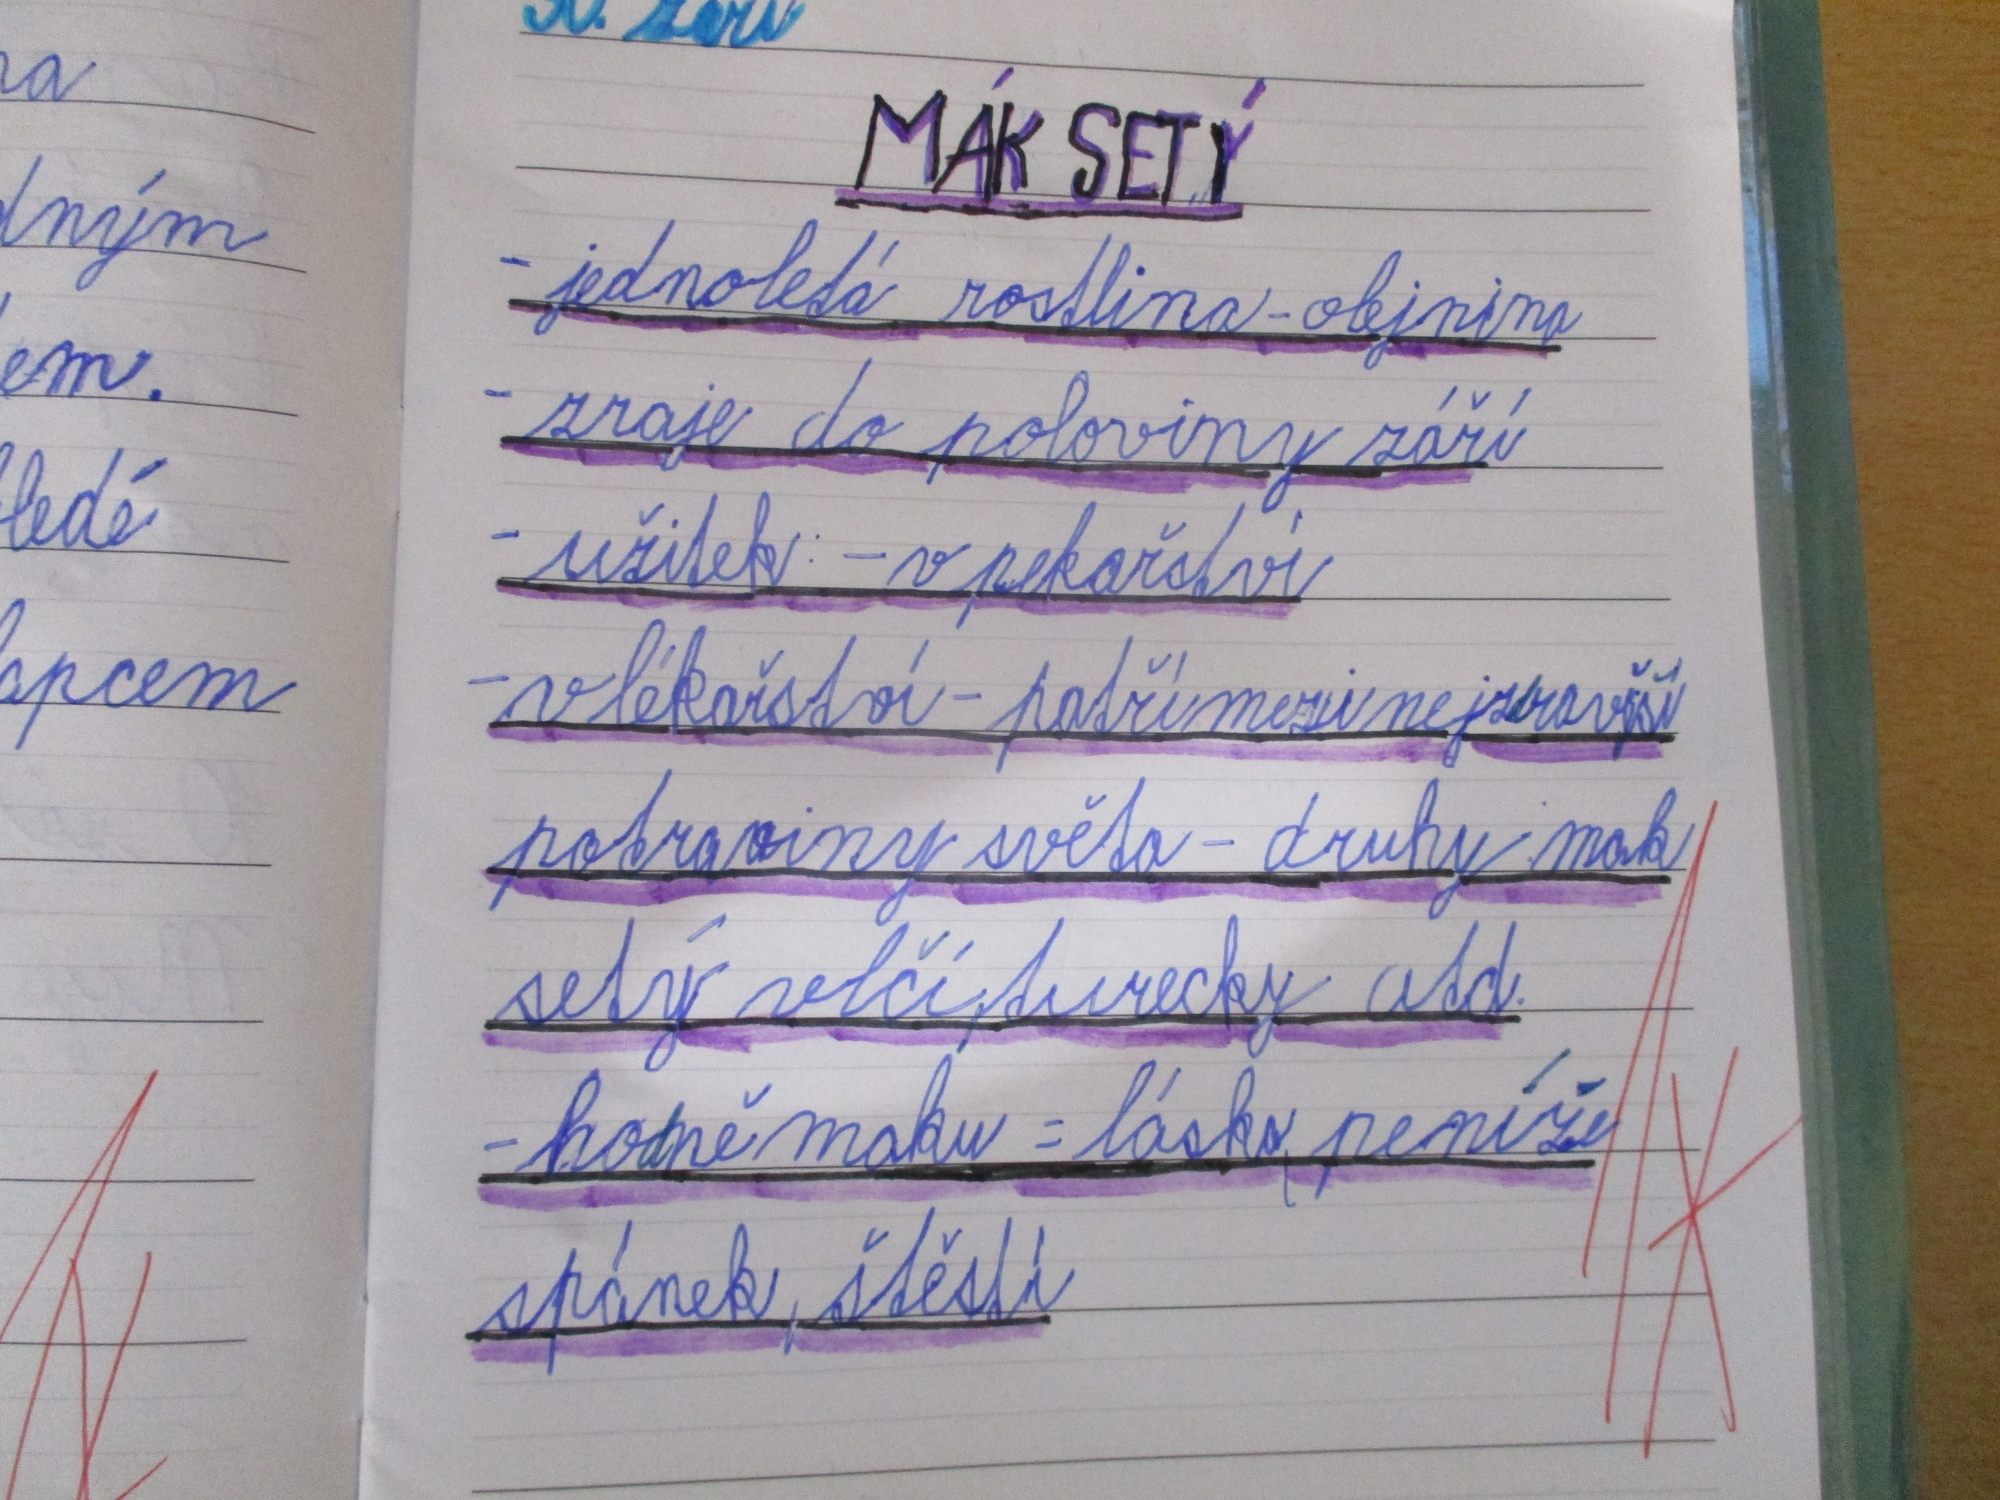 na
dným
dem.
hledé
lapcem
30. září
MÁK SETÝ
- jednoletá rostlina - olejnina
- zraje do poloviny září
- užitek: - v pekařství
- v lékařství - patří mezi nejzdravější
potraviny světa - druhy: mak
setý vlčí, turecky atd.
- hodně maku = láska, peníze
spánek, štěstí